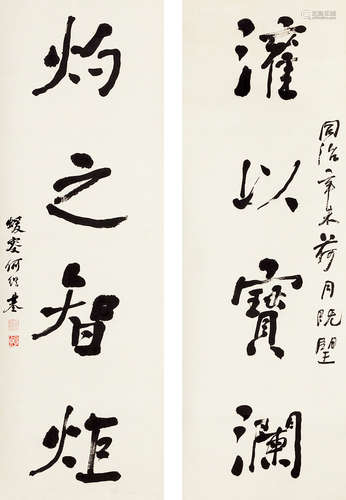 灌以寶瀾
同治辛未荷月既望
灼之智炬
蝯叟何紹基